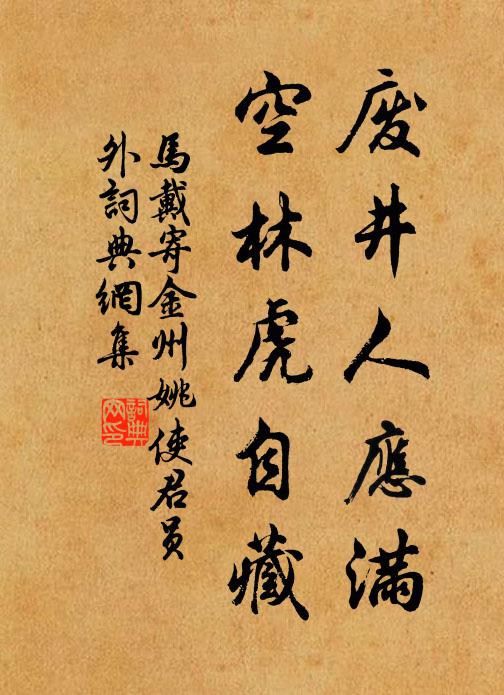 废井人應滿
空林虎自藏
馬戴寄金州姚使君员
外詞典網集
詞典
网印